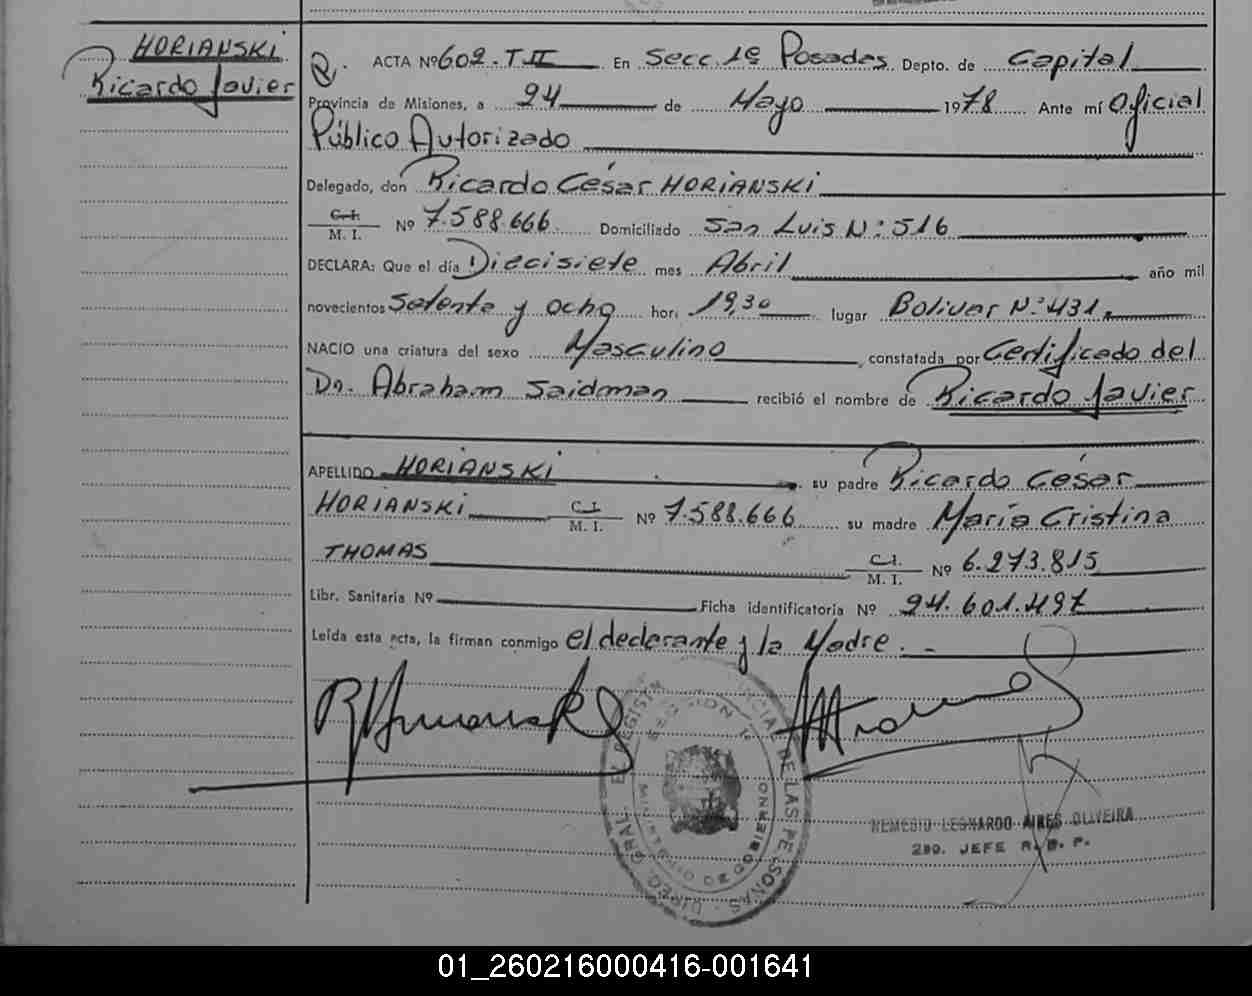 HORIANSKI
Ricardo Javier
ACTA Nº 602-T II En Secc. 1º Posadas Depto. de Capital
Provincia de Misiones, a 24 de Mayo 1978 Ante mí Oficial
Público Autorizado
Delegado, don Ricardo César HORIANSKI
C. I.
M. I. Nº 7.588.666 Domiciliado San Luis N: 516
DECLARA: Que el día Diecisiete mes Abril año mil
novecientos Setenta y ocho hora 19,30 lugar Bolivar Nº: 431.
NACIO una criatura del sexo Masculino, constatada por Certificado del
Dr. Abraham Saidman recibió el nombre de Ricardo Javier
APELLIDO HORIANSKI su padre Ricardo César
HORIANSKI C. I.
M. I. Nº 7.588.666 su madre María Cristina
THOMAS C. I.
M. I. Nº 6.273.815
Libr. Sanitaria Nº Ficha identificatoria Nº 24.601.497
Leída esta acta, la firman conmigo el declarante y la Madre. -
DIREC. GRAL. PROVINCIAL DE LAS PERSONAS
SECCION 1ª
MINISTERIO DE GOBIERNO
NEMESIO LEONARDO AIRES OLIVEIRA
2DO. JEFE R. P. P.
01_260216000416-001641